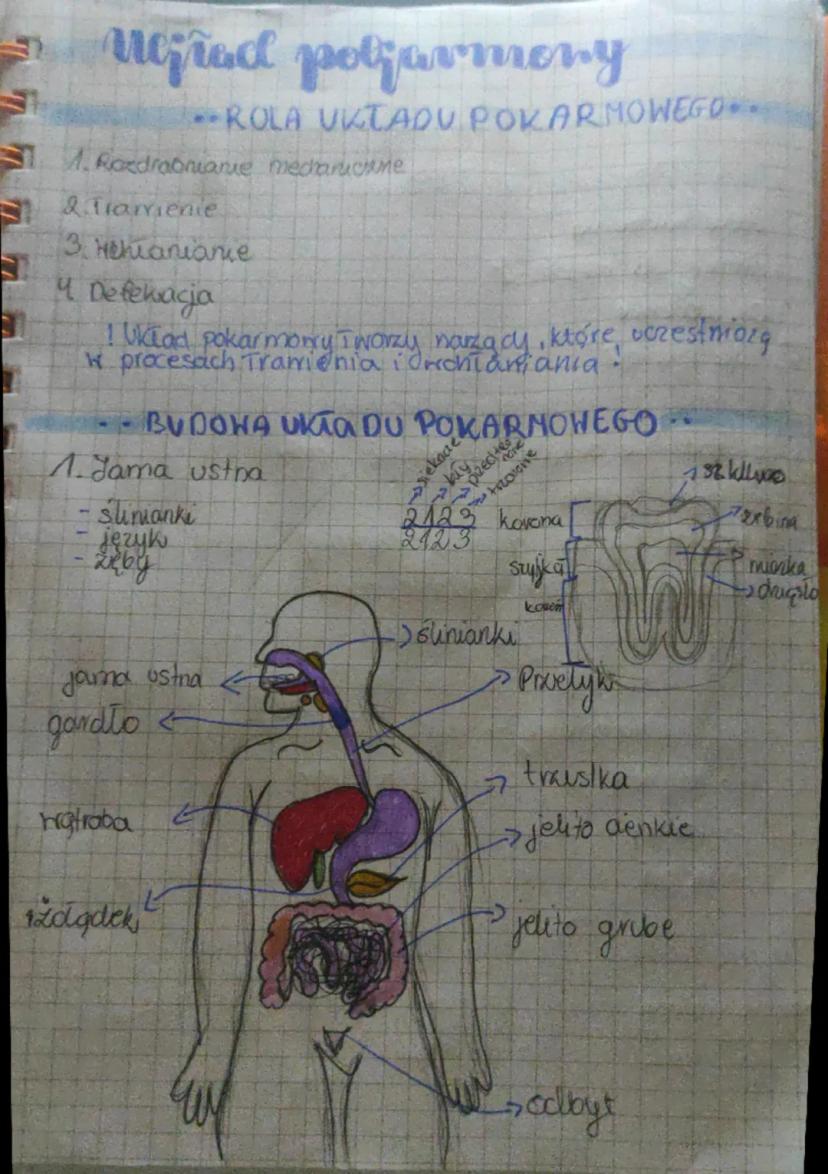 Układ pokarmowy
··ROLA UKŁADU POKARMOWEGO··
1. Rozdrabnianie mechaniczne
2. Trawienie
3. Wchłanianie
4. Defekacja
! Układ pokarmowy tworzy narządy, które uczestniczą
w procesach trawienia i wchłaniania!
·· BUDOWA UKŁADU POKARMOWEGO ··
1. Jama ustna
- ślinianki
- język
- zęby
siekacze
kły
przedtrzonowe
trzonowe
2123
2123
szkliwo
korona
zębina
szyjka
miazga
korzeń
dziąsło
ślinianki
jama ustna
Przełyk
gardło
trzustka
wątroba
jelito cienkie
żołądek
jelito grube
odbyt